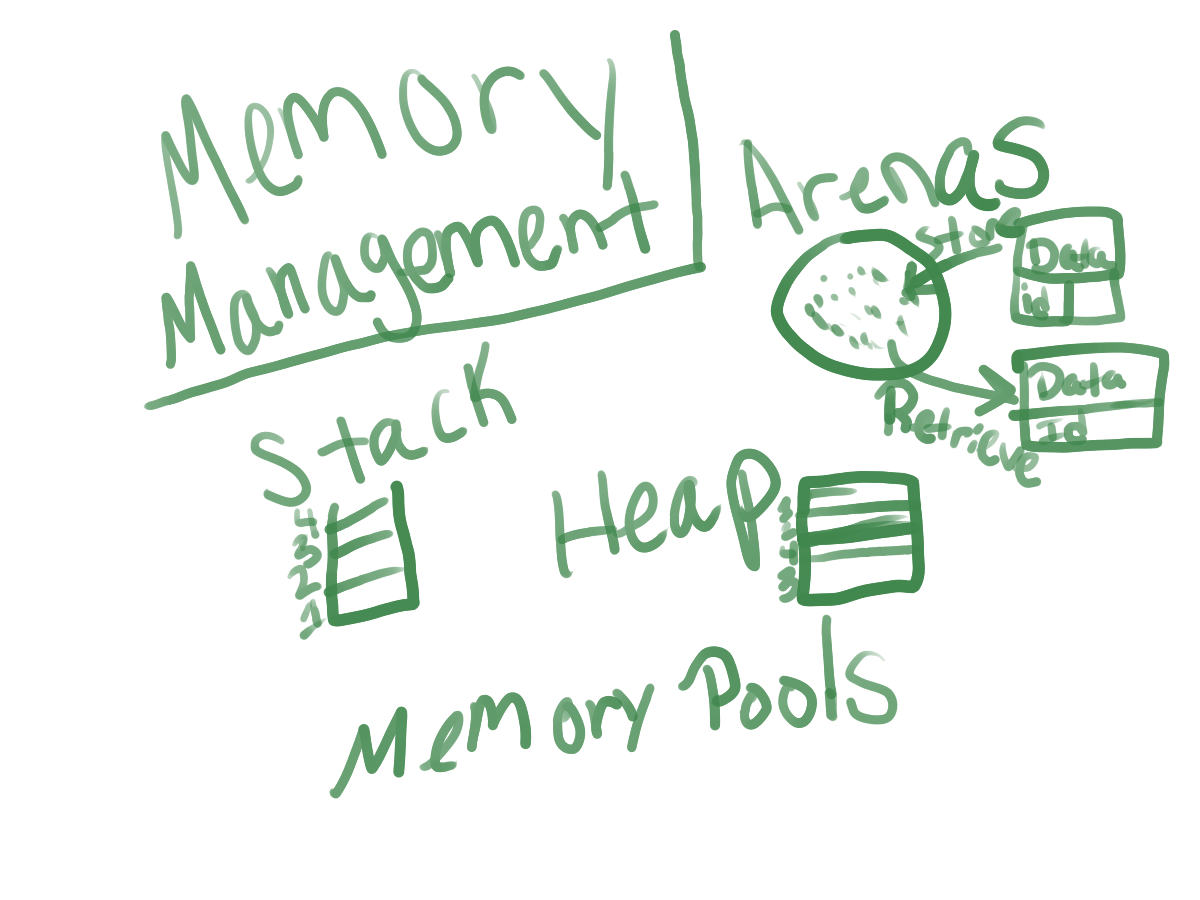 Memory
Management
Arenas
Store
Data
id
Data
id
Retrieve
Stack
4
3
2
1
Heap
Memory Pools